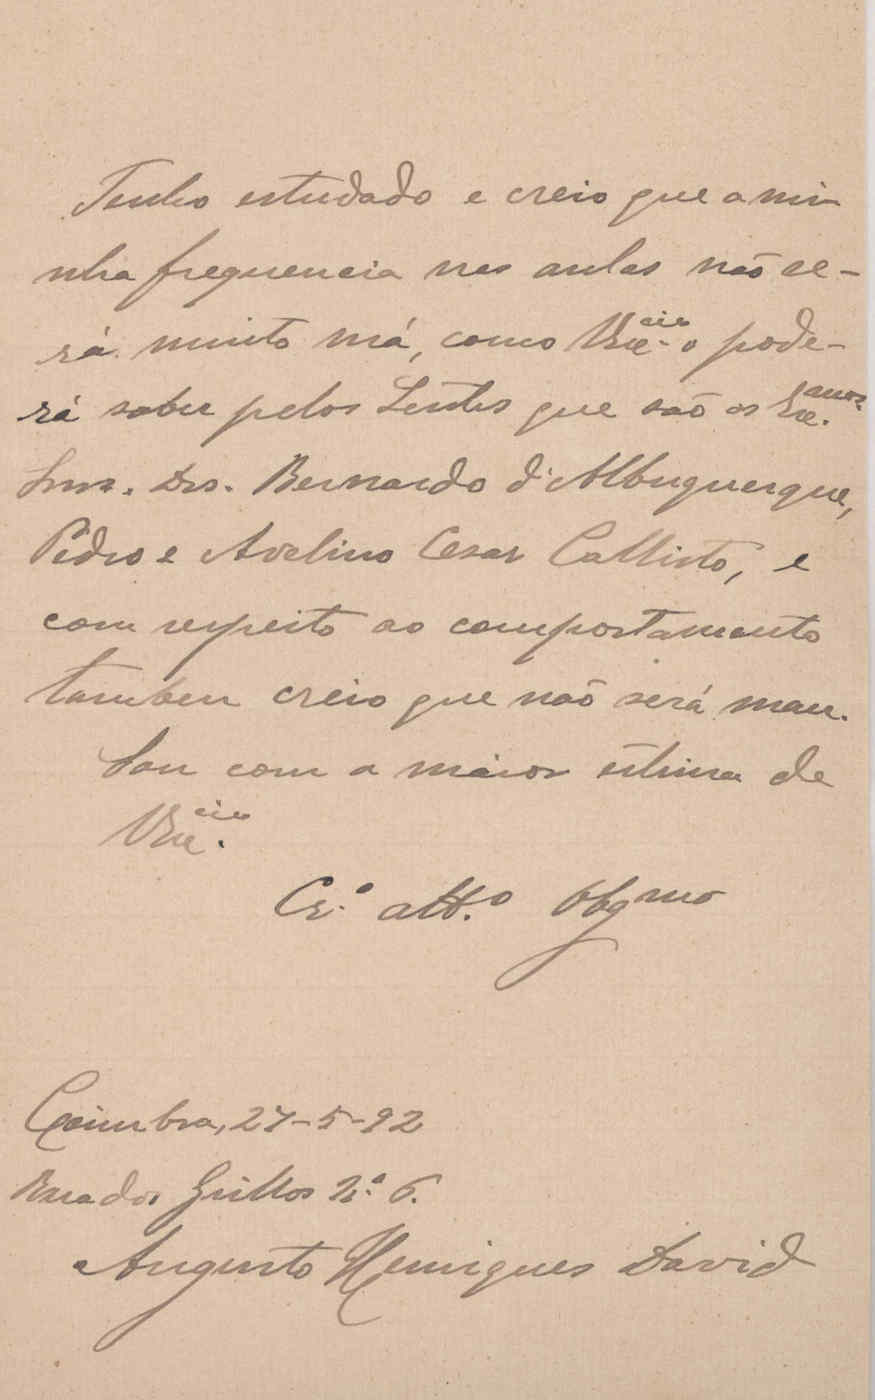 Tenho estudado e creio que a mi-
nha frequencia nas aulas não se-
rá muito má, como VExcia. o pode-
rá saber pelos Lentes que são os Exc.mos
Snrs. Drs. Bernardo d'Albuquerque,
Pedro e Avelino Cesar Callisto, e
com respeito ao comportamento
tambem creio que não será mau.
Sou com a maior estima de
VExcia.
Cr.º att.º Obgmo
Coimbra, 27-5-92
Rua dos Grillos N.º 6.
Augusto Henriques David